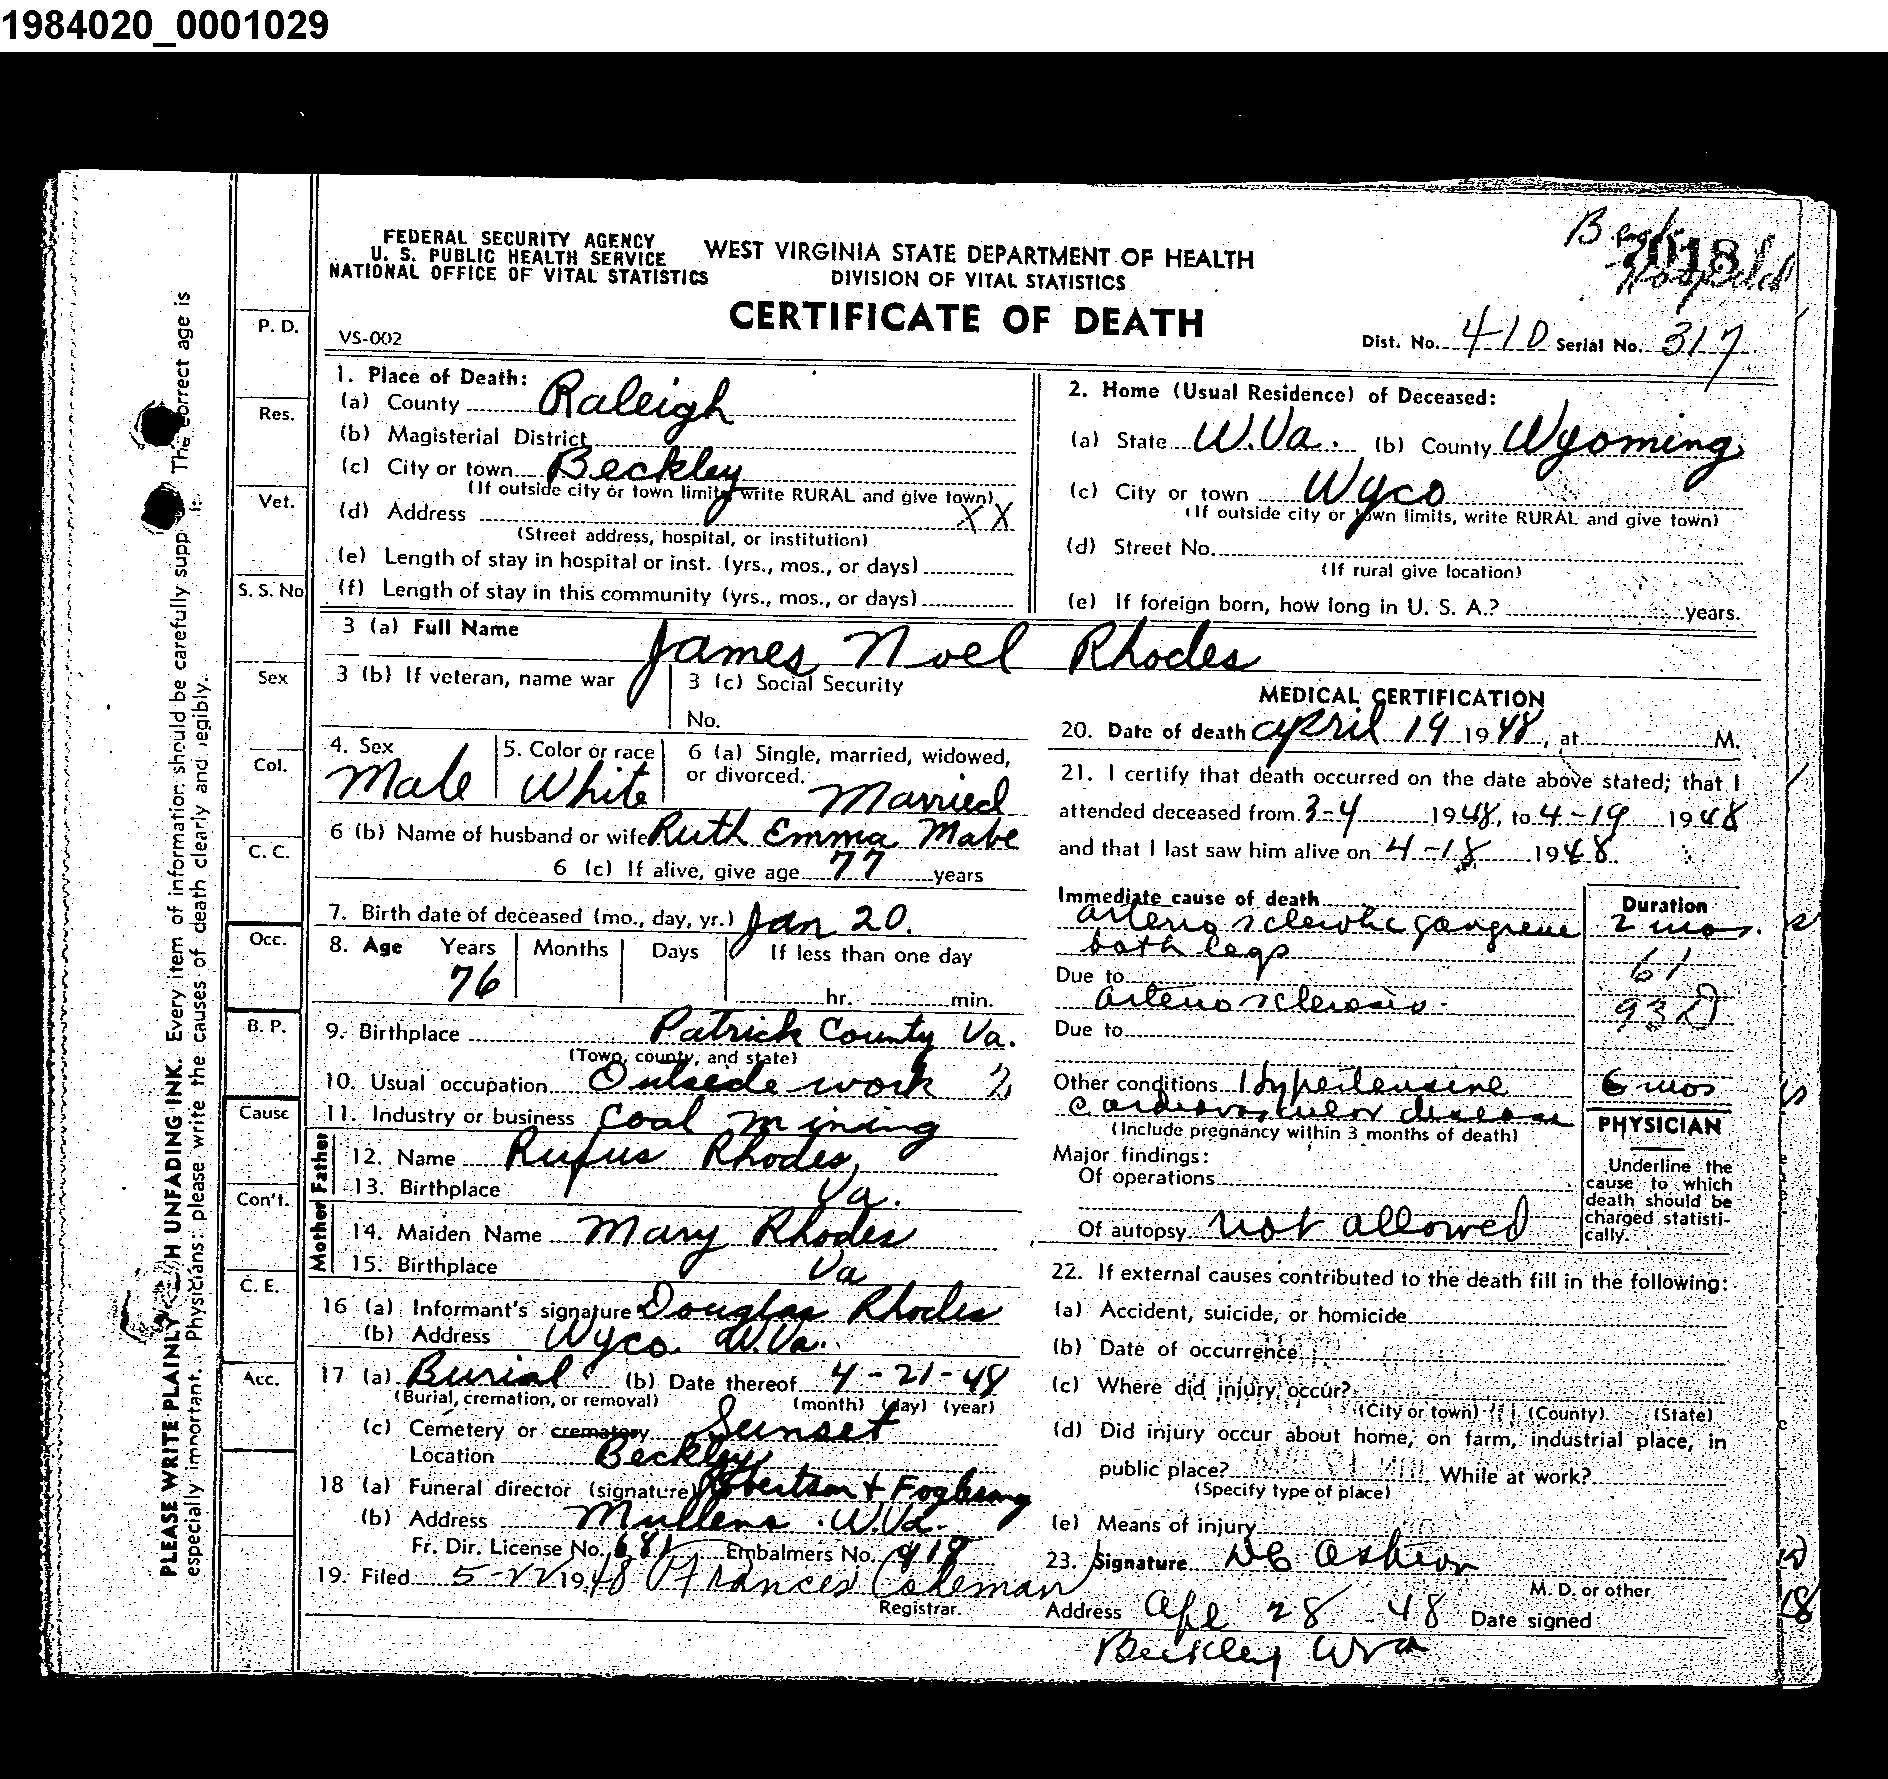 1984020_0001029
FEDERAL SECURITY AGENCY
U. S. PUBLIC HEALTH SERVICE
NATIONAL OFFICE OF VITAL STATISTICS
WEST VIRGINIA STATE DEPARTMENT OF HEALTH
DIVISION OF VITAL STATISTICS
CERTIFICATE OF DEATH
Hospital
VS-002
Dist. No. 410 Serial No. 317
1. Place of Death:
(a) County Raleigh
(b) Magisterial District
(c) City or town Beckley
(If outside city or town limits write RURAL and give town)
(d) Address XX
(Street address, hospital, or institution)
(e) Length of stay in hospital or inst. (yrs., mos., or days)
(f) Length of stay in this community (yrs., mos., or days)
2. Home (Usual Residence) of Deceased:
(a) State W.Va. (b) County Wyoming
(c) City or town Wyco
(If outside city or town limits, write RURAL and give town)
(d) Street No.
(If rural give location)
(e) If foreign born, how long in U. S. A.? years.
3 (a) Full Name James Noel Rhodes
3 (b) If veteran, name war
3 (c) Social Security
No.
4. Sex Male
5. Color or race White
6 (a) Single, married, widowed, or divorced. Married
6 (b) Name of husband or wife Ruth Emma Mabe
6 (c) If alive, give age 77 years
7. Birth date of deceased (mo., day, yr.) Jan 20.
8. Age Years Months Days If less than one day
76 hr. min.
9. Birthplace Patrick County Va.
(Town, county, and state)
10. Usual occupation Outside work 2
11. Industry or business Coal mining
Father
12. Name Rufus Rhodes,
13. Birthplace Va.
Mother
14. Maiden Name Mary Rhodes
15. Birthplace Va
16 (a) Informant's signature Douglas Rhodes
(b) Address Wyco. W.Va.
17 (a) Burial (b) Date thereof 4-21-48
(Burial, cremation, or removal) (month) (day) (year)
(c) Cemetery or crematory Sunset
Location Beckley
18 (a) Funeral director (signature) Robertson + Foglesong
(b) Address Mullens W.Va.
Fr. Dir. License No. 681 Embalmers No. 918
19. Filed 5-22 1948 Frances Coleman
Registrar.
MEDICAL CERTIFICATION
20. Date of death april 19 1948, at M.
21. I certify that death occurred on the date above stated; that I
attended deceased from 3-4 1948, to 4-19 1948
and that I last saw him alive on 4-18 1948.
Immediate cause of death Duration
arterio sclerotic gangrene 2 mos.
both legs 61
Due to
arterio sclerosis. 93D
Due to
Other conditions Hypertensive 6 mos
cardiovascular disease
(Include pregnancy within 3 months of death)
PHYSICIAN
Underline the
cause to which
death should be
charged statisti-
cally.
Major findings:
Of operations
Of autopsy not allowed
22. If external causes contributed to the death fill in the following:
(a) Accident, suicide, or homicide
(b) Date of occurrence
(c) Where did injury occur?
(City or town) (County) (State)
(d) Did injury occur about home, on farm, industrial place, in
public place? While at work?
(Specify type of place)
(e) Means of injury
23. Signature
M. D. or other
Address Apr 28 48 Date signed
Beckley WVa
P. D.
Res.
Vet.
S. S. No
Sex
Col.
C. C.
Occ.
B. P.
Cause
Con't.
C. E.
Acc.
PLEASE WRITE PLAINLY UNFADING INK. Every item of information should be carefully supp The correct age is
especially important. Physicians: please write the causes of death clearly and legibly.